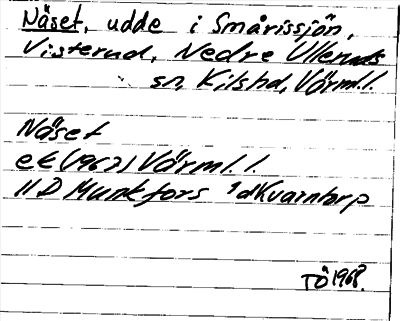 Näset, udde i Smårissjön,
Visterud, Nedre Ulleruds
sn, Kilshd, Värml.l.
Näset
ek (1967) Värml.l.
11D Munkfors 1d Kvarntorp
TÖ 1968.